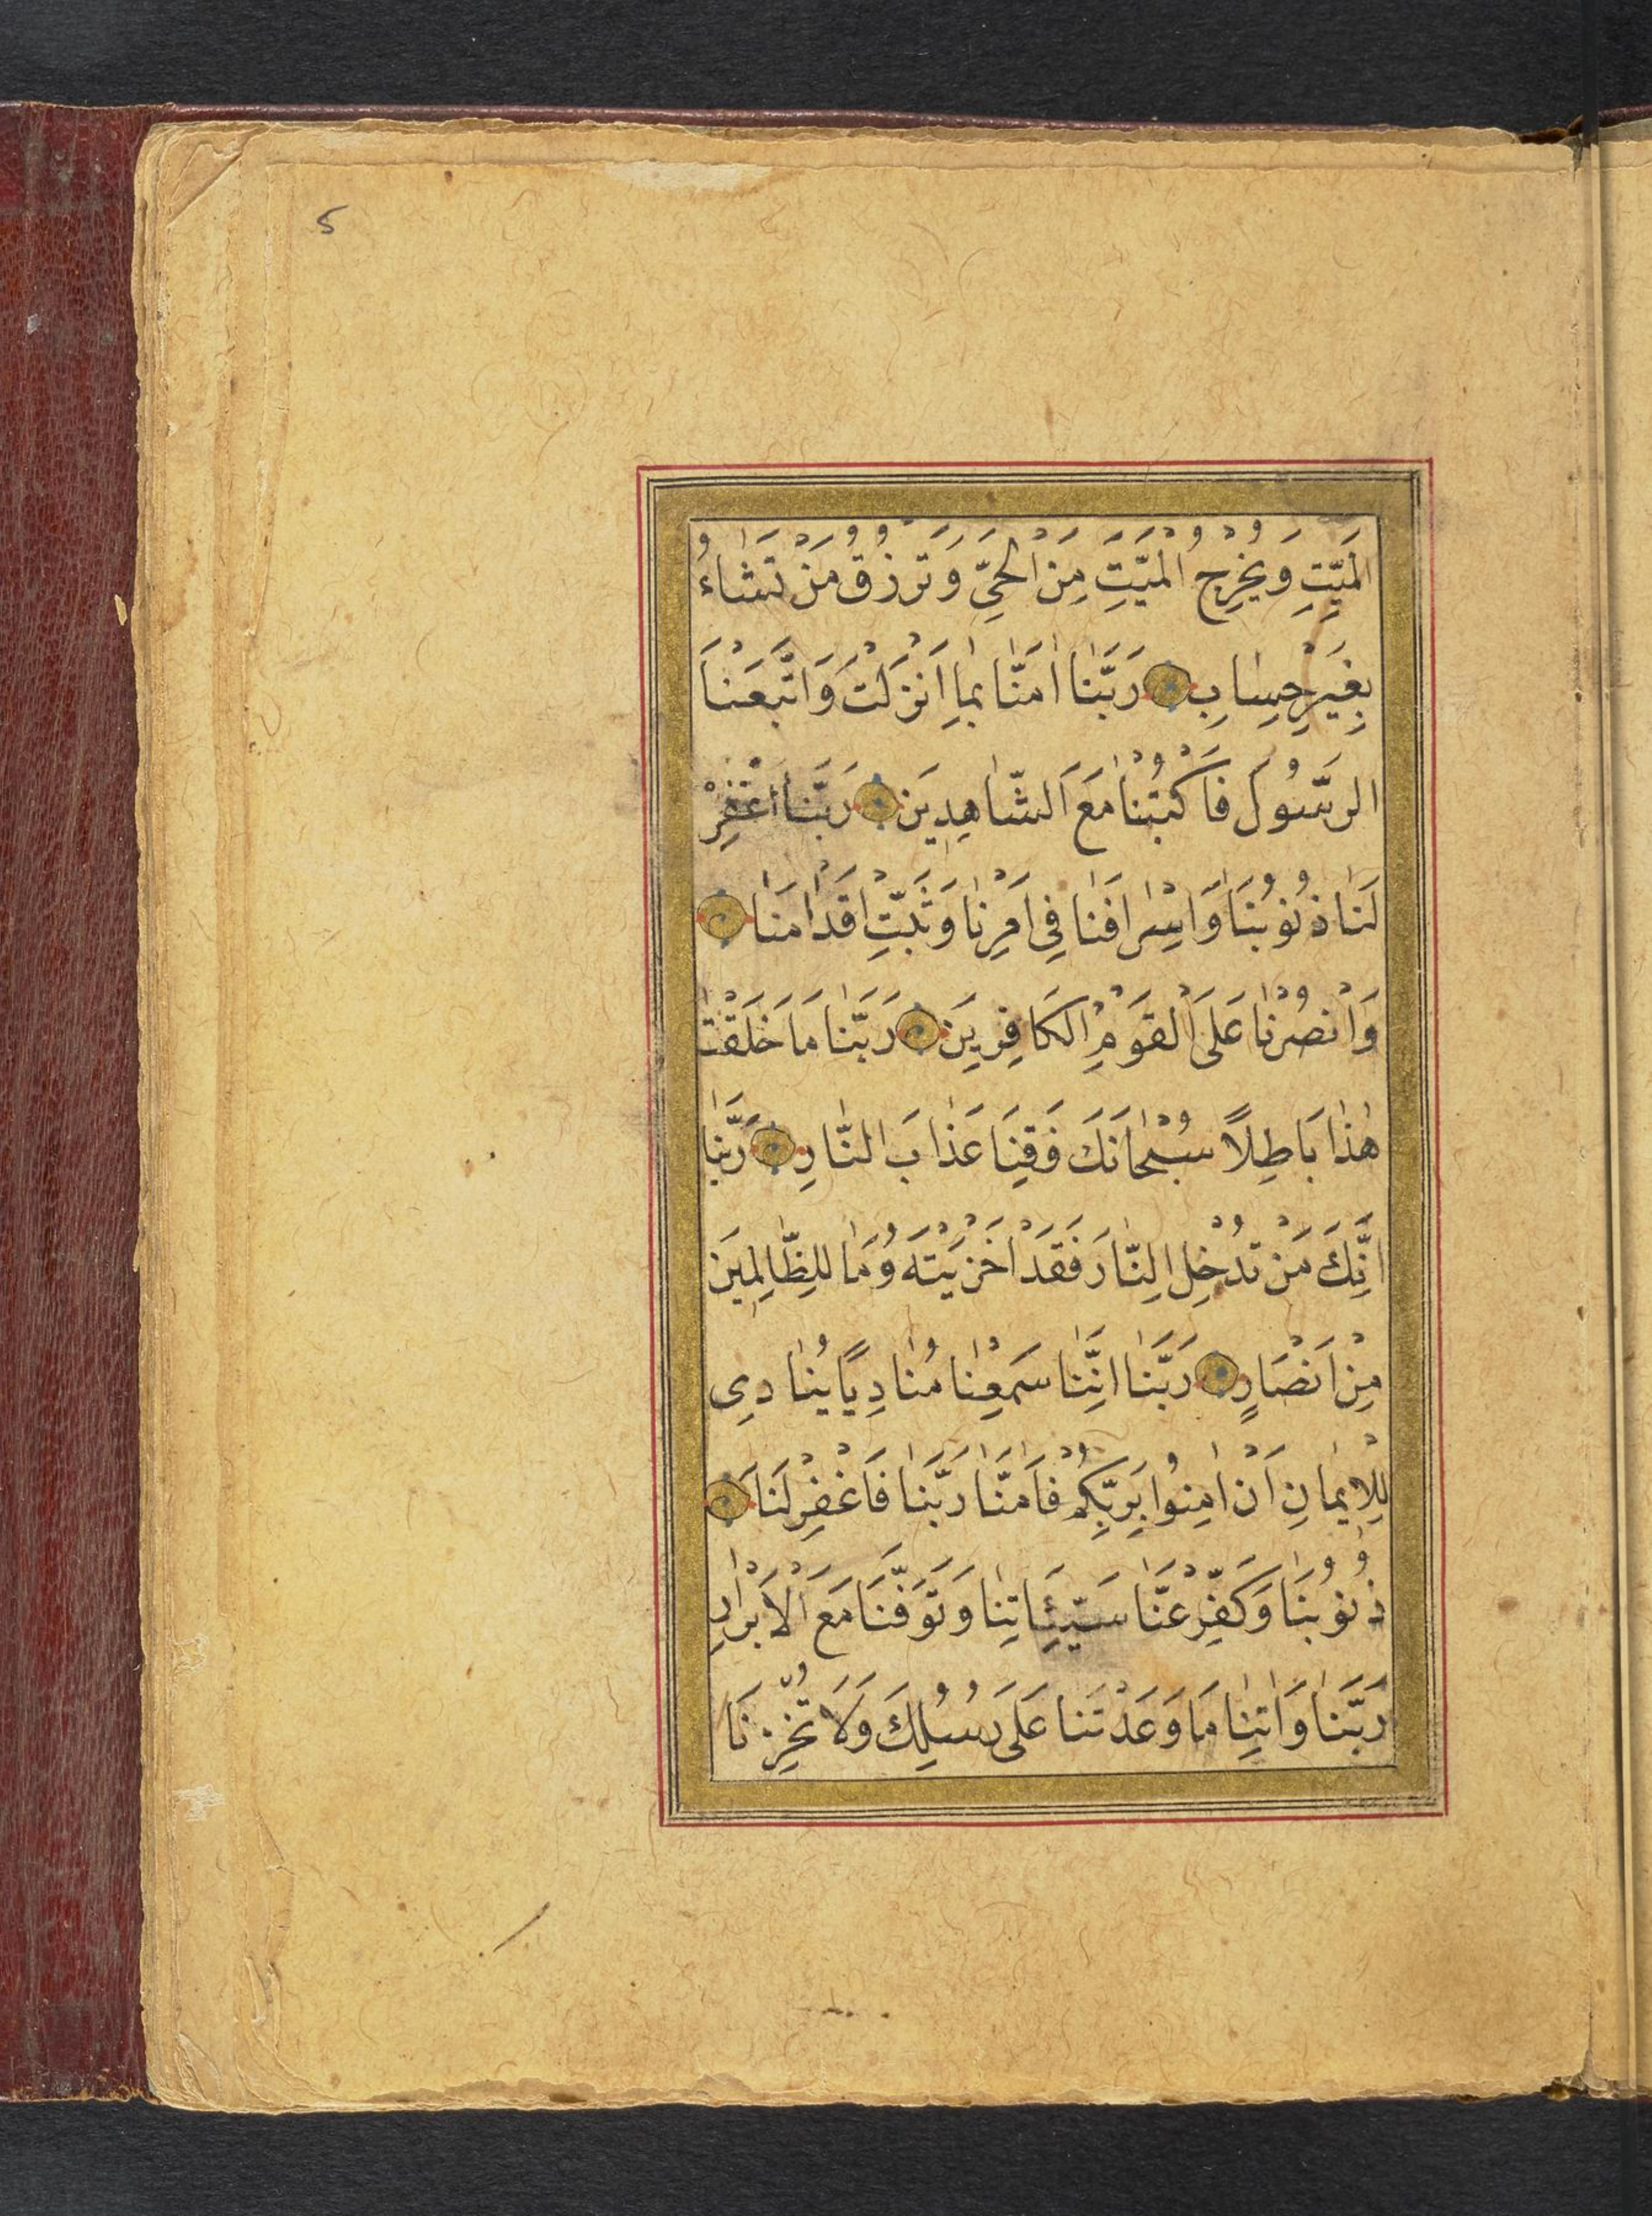 5
الْمَيِّتِ وَيُخْرِجُ الْمَيِّتَ مِنَ الْحَيِّ وَتَرْزُقُ مَنْ تَشَاءُ
بِغَيْرِ حِسَابٍ رَبَّنَا اٰمَنَّا بِمَا اَنْزَلْتَ وَاتَّبَعْنَا
الرَّسُولَ فَاكْتُبْنَا مَعَ الشَّاهِدِينَ رَبَّنَا اغْفِرْ
لَنَا ذُنُوبَنَا وَاِسْرَافَنَا فِي اَمْرِنَا وَثَبِّتْ اَقْدَامَنَا
وَانْصُرْنَا عَلَى الْقَوْمِ الْكَافِرِينَ رَبَّنَا مَا خَلَقْتَ
هٰذَا بَاطِلًا سُبْحَانَكَ فَقِنَا عَذَابَ النَّارِ رَبَّنَا
اِنَّكَ مَنْ تُدْخِلِ النَّارَ فَقَدْ اَخْزَيْتَهُ وَمَا لِلظَّالِمِينَ
مِنْ اَنْصَارٍ رَبَّنَا اِنَّنَا سَمِعْنَا مُنَادِيًا يُنَادِي
لِلْاِيمَانِ اَنْ اٰمِنُوا بِرَبِّكُمْ فَاٰمَنَّا رَبَّنَا فَاغْفِرْ لَنَا
ذُنُوبَنَا وَكَفِّرْ عَنَّا سَيِّئَاتِنَا وَتَوَفَّنَا مَعَ الْاَبْرَارِ
رَبَّنَا وَاٰتِنَا مَا وَعَدْتَنَا عَلَى رُسُلِكَ وَلَا تُخْزِنَا